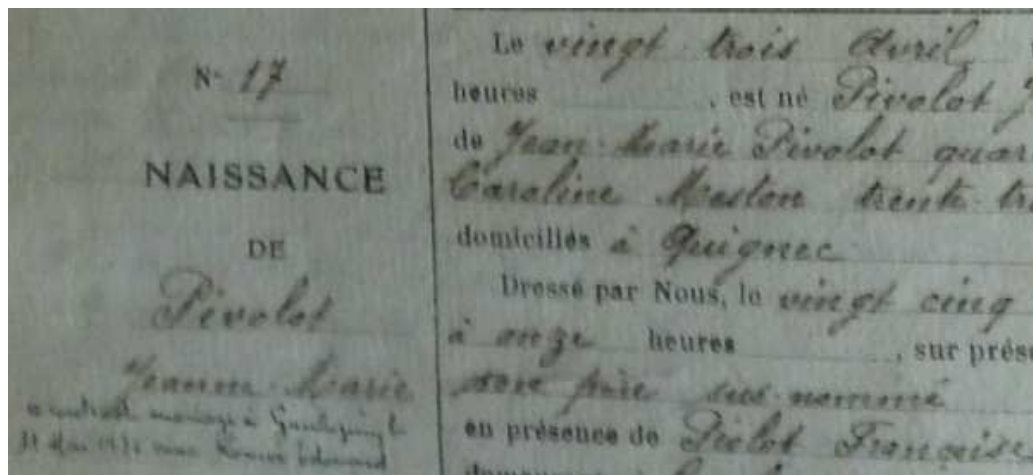 N° 17
NAISSANCE
DE
Pivolot
Jeanne Marie
contracté mariage à
Le vingt trois Avril
heures , est né Pivolot
de Jean-Marie Pivolot quar
Caroline Maston trente tr
domiciliés à Guignec
Dressé par Nous, le vingt cinq
à onze heures , sur prése
son père sus-nommé
en présence de Pielot Françoise